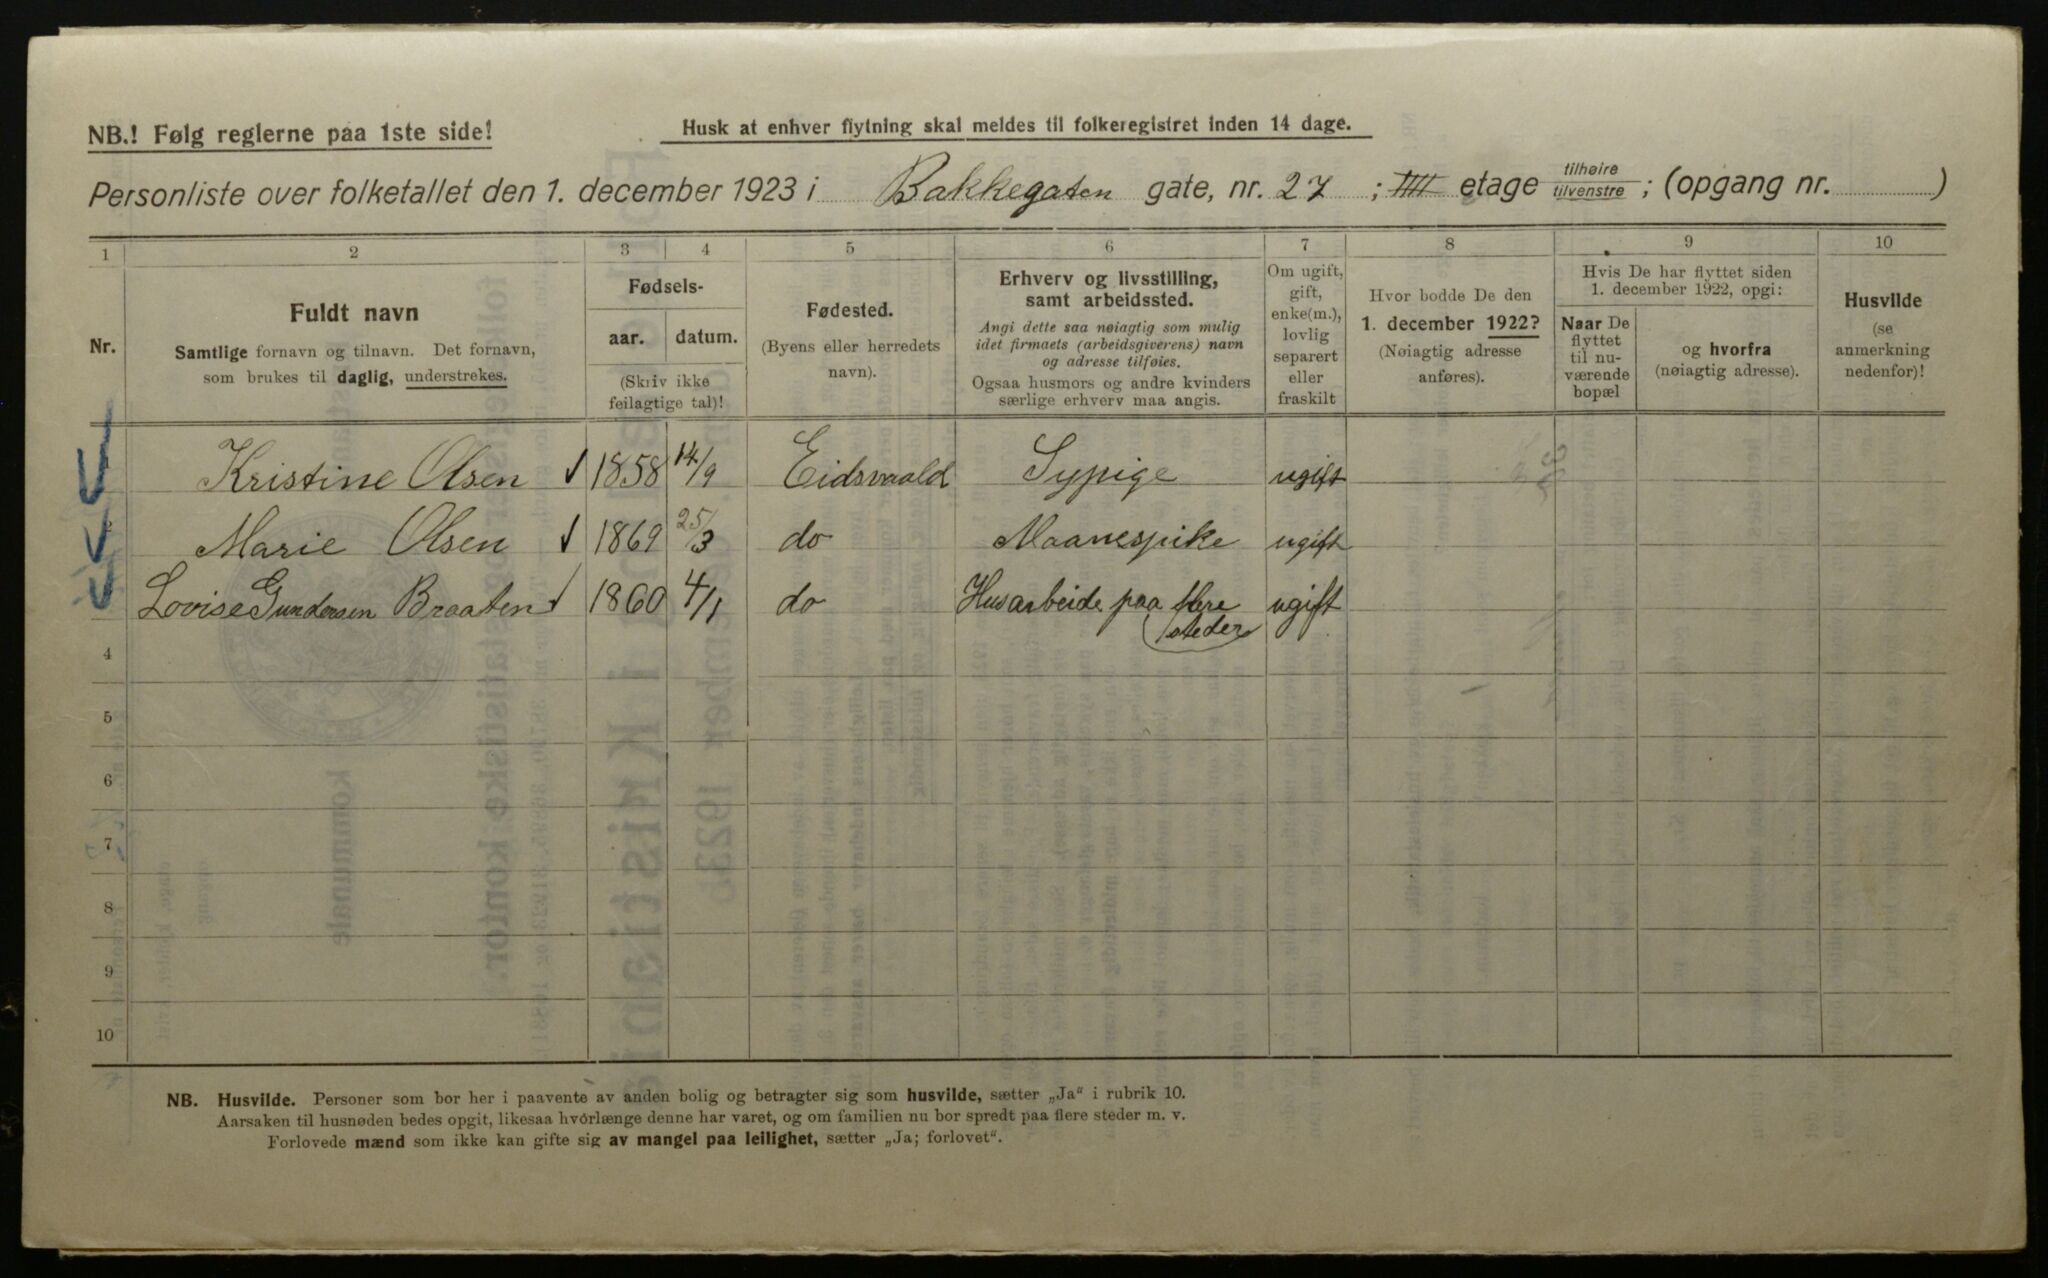 NB.! Følg reglerne paa 1ste side!
Husk at enhver flytning skal meldes til folkeregistret inden 14 dage.
Personliste over folketallet den 1. december 1923 i Bakkegaten gate, nr. 27 ; IIII etage tilhøire tilvenstre ; (opgang nr. )
1 2 3 4 5 6 7 8 9 10
Nr.
Fuldt navn
Samtlige fornavn og tilnavn. Det fornavn,
som brukes til daglig, understrekes.
Fødsels-
aar. datum.
(Skriv ikke
feilagtige tal)!
Fødested.
(Byens eller herredets
navn).
Erhverv og livsstilling,
samt arbeidssted.
Angi dette saa nøiagtig som mulig
idet firmaets (arbeidsgiverens) navn
og adresse tilføies.
Ogsaa husmors og andre kvinders
særlige erhverv maa angis.
Om ugift,
gift,
enke(m.),
lovlig
separert
eller
fraskilt
Hvor bodde De den
1. december 1922?
(Nøiagtig adresse
anføres).
Hvis De har flyttet siden
1. december 1922, opgi:
Naar De
flyttet
til nu-
værende
bopæl
og hvorfra
(nøiagtig adresse).
Husvilde
(se
anmerkning
nedenfor)!
Kristine Olsen 1858 14/9 Eidsvaald Sypige ugift
2 Marie Olsen 1869 25/3 do Maanespike ugift
Lovise Gundersen Braaten 1860 4/1 do Husarbeide paa flere ugift
steder
4
5
6
7
8
9
10
NB. Husvilde. Personer som bor her i paavente av anden bolig og betragter sig som husvilde, sætter „Ja“ i rubrik 10.
Aarsaken til husnøden bedes opgit, likesaa hvorlænge denne har varet, og om familien nu bor spredt paa flere steder m. v.
Forlovede mænd som ikke kan gifte sig av mangel paa leilighet, sætter „Ja; forlovet“.